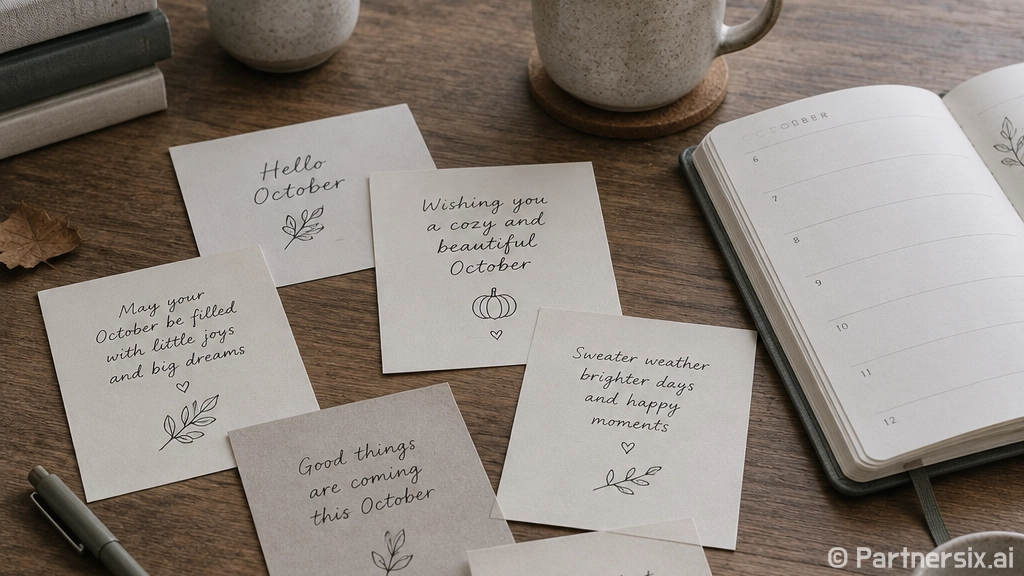 Hello
October
Wishing you
a cozy and
beautiful
October
May your
October be filled
with little joys
and big dreams
Sweater weather
brighter days
and happy
moments
Good things
are coming
this October
OCTOBER
6
7
8
9
10
11
12
© Partnersix.ai